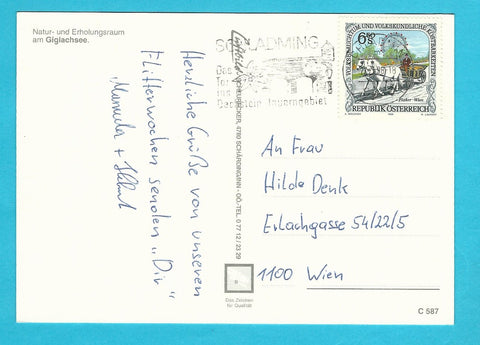 Natur- und Erholungsraum
am Giglachsee.
SCHLADMING
Das
Tor
ins
Dachstein Tauerngebiet
VOLKSBRAUCHTUM UND VOLKSKUNDLICHE KOSTBARKEITEN
6.50
S
Fiaker - Wien
REPUBLIK ÖSTERREICH
Herzliche Grüße von unseren
Flitterwochen senden „Dir“
Manuela + Helmut
4780 SCHÄRDING/INN - OÖ - TEL. 0 77 12 / 23 29
An Frau
Hilda Denk
Erlachgasse 54/22/5
1100 Wien
Das Zeichen
für Qualität
C 587